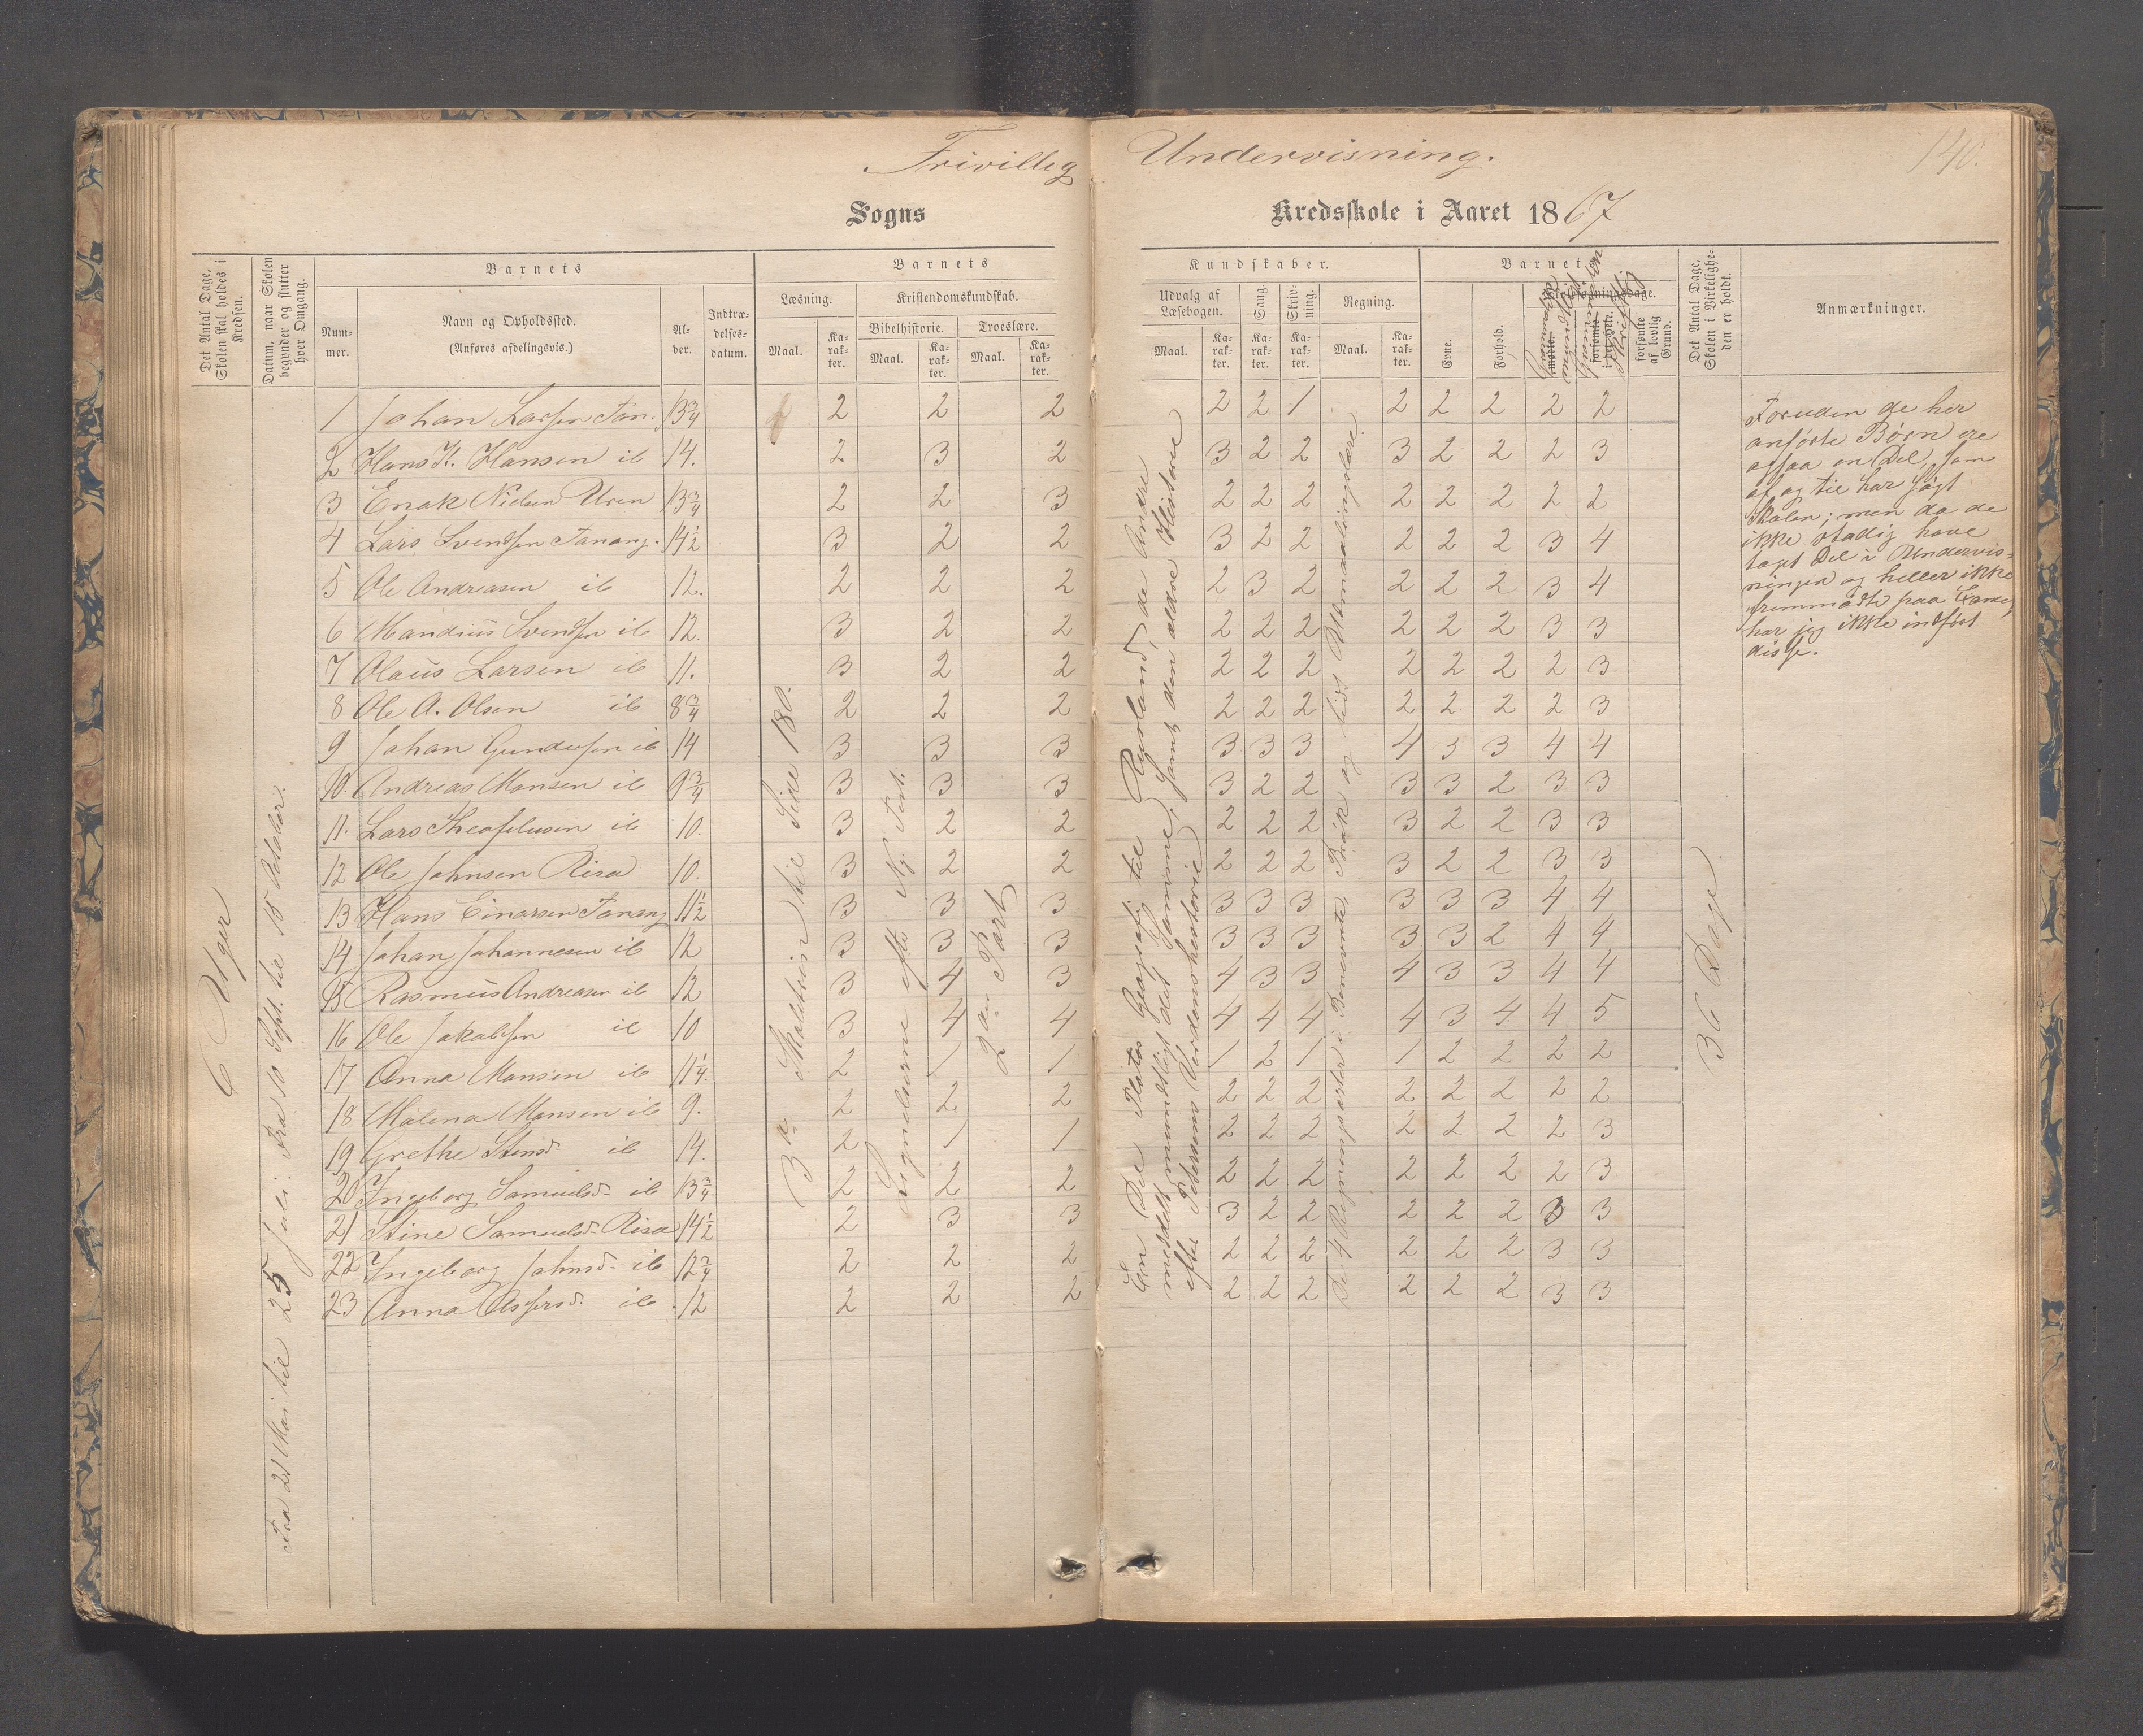 Frivillig Undervisning.
140.
Sogns Kredsskole i Aaret 1867
Det Antal Dage, Skolen skal holdes i Kredsen.
Datum, naar Skolen begynder og slutter hver Omgang.
Barnets
Num-mer.
Navn og Opholdssted.
(Anføres afdelingsvis.)
Al-der.
Indtræ-delses-datum.
Barnets
Læsning.
Maal.
Ka-rak-ter.
Kristendomskundskab.
Bibelhistorie.
Maal.
Ka-rak-ter.
Troeslære.
Maal.
Ka-rak-ter.
Kundskaber.
Udvalg af Læsebogen.
Maal.
Ka-rak-ter.
Sang.
Ka-rak-ter.
Skriv-ning.
Ka-rak-ter.
Regning.
Maal.
Ka-rak-ter.
Barnets
Evne.
Forhold.
forsømte af lovlig Grund.
Det Antal Dage, Skolen i Virkelighe-den er holdt.
Anmærkninger.
6 Uger
Fra 21 Mai til 25 Juli. Fra 10 Sept. til 15 Oktober.
3die Skoletrin til Side 180.
Lignelserne efter Ny. Test.
2den Part
En Del Platos Geografi til Rusland, de Andre
meddelt mundtligt det Samme, samt den ældre Historie
efter Petersens Verdenshistorie
De 4 Regningsarter i Benevnte, Brøk og lidt Udmaalingslære
36 Dage
1 Johan Larsen Tan. 13 3/4 2 2 2 2 2 1 2 2 2 2 2
2 Hans K. Hansen ib 14. 2 3 2 3 2 2 3 2 2 2 3
3 Enok Nielsen Uren 13 3/4 2 2 3 2 2 2 2 2 2 2 2
4 Lars Svendsen Tanang. 14 1/2 3 2 2 3 2 2 2 2 2 3 4
5 Ole Andreasen ib 12. 2 2 2 2 3 2 2 2 2 3 4
6 Mandius Svendsen ib 12. 3 2 2 2 2 2 2 2 2 3 3
7 Olaus Larsen ib 11. 3 2 2 2 2 2 2 2 2 2 3
8 Ole A. Olsen ib 8 3/4 2 2 2 2 2 2 2 2 2 2 3
9 Johan Gundersen ib 14 3 3 3 3 3 3 4 3 3 4 4
10. Andreas Monsen ib 9 3/4 3 3 3 3 2 2 3 3 2 3 3
11. Lars Theofelusen ib 10. 3 2 2 2 2 2 3 2 2 3 3
12 Ole Johnsen Risa 10. 3 2 2 2 2 2 3 2 2 3 3
13 Hans Einarsen Tanang 11 1/2 3 3 3 3 3 3 3 3 3 4 4
14 Johan Johannesen ib 12 3 3 3 3 3 3 3 3 2 4 4
15 Rasmus Andreasen ib 12 3 4 3 4 3 3 4 3 3 4 4
16 Ole Jakobsen ib 10 3 4 4 4 4 4 4 3 4 4 5
17 Anna Monsen ib 11 1/4. 2 1 1 1 2 1 1 2 2 2 2
18 Malena Monsen ib 9. 2 2 2 2 2 2 2 2 2 2 2
19 Grethe Stensd. ib 14. 2 1 1 2 2 2 2 2 2 2 3
20 Ingeborg Samuelsd. ib 13 3/4 2 2 2 2 2 2 2 2 2 2 3
21 Stine Samuelsd. Risa 14 1/2 2 3 3 3 2 2 2 2 2 3 3
22 Ingeborg Johnsd. ib 12 3/4 2 2 2 2 2 2 2 2 2 3 3
23 Anna Asfersd. ib 12 2 2 2 2 2 2 2 2 2 3 3
Foruden de her
anførte Børn ere
ogsaa en Del, som
af og til har søgt
Skolen; men da de
ikke stadig have
taget Del i Undervis=
ningen og heller ikke
fremmødte paa Examen,
har jeg ikke indført
disse.